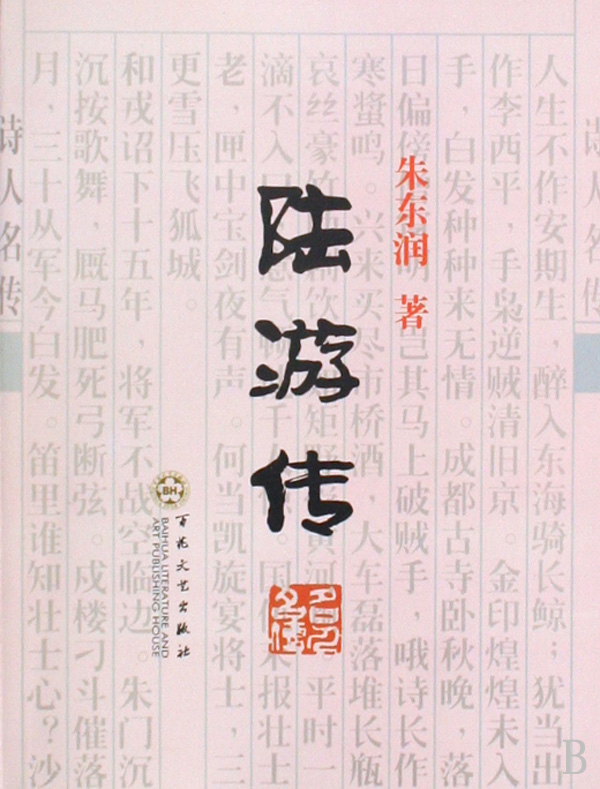 陆游传
朱东润 著
百花文艺出版社
BAIHUA LITERATURE AND
ART PUBLISHING HOUSE
BH
诗人名传
人生不作安期生，醉入东海骑长鲸；犹当出
作李西平，手枭逆贼清旧京。金印煌煌未入
手，白发种种来无情。成都古寺卧秋晚，落
日偏傍 明。岂其马上破贼手，哦诗长作
寒螿鸣。兴来买尽市桥酒，大车磊落堆长瓶
哀丝豪竹 饮 野 黄河 平时一
滴不入口 意气 千人 国仇未报壮士
老，匣中宝剑夜有声。何当凯旋宴将士，三
更雪压飞狐城。
和戎诏下十五年，将军不战空临边。朱门沉
沉按歌舞，厩马肥死弓断弦。戍楼刁斗催落
月，三十从军今白发。笛里谁知壮士心？沙
诗人名传
B